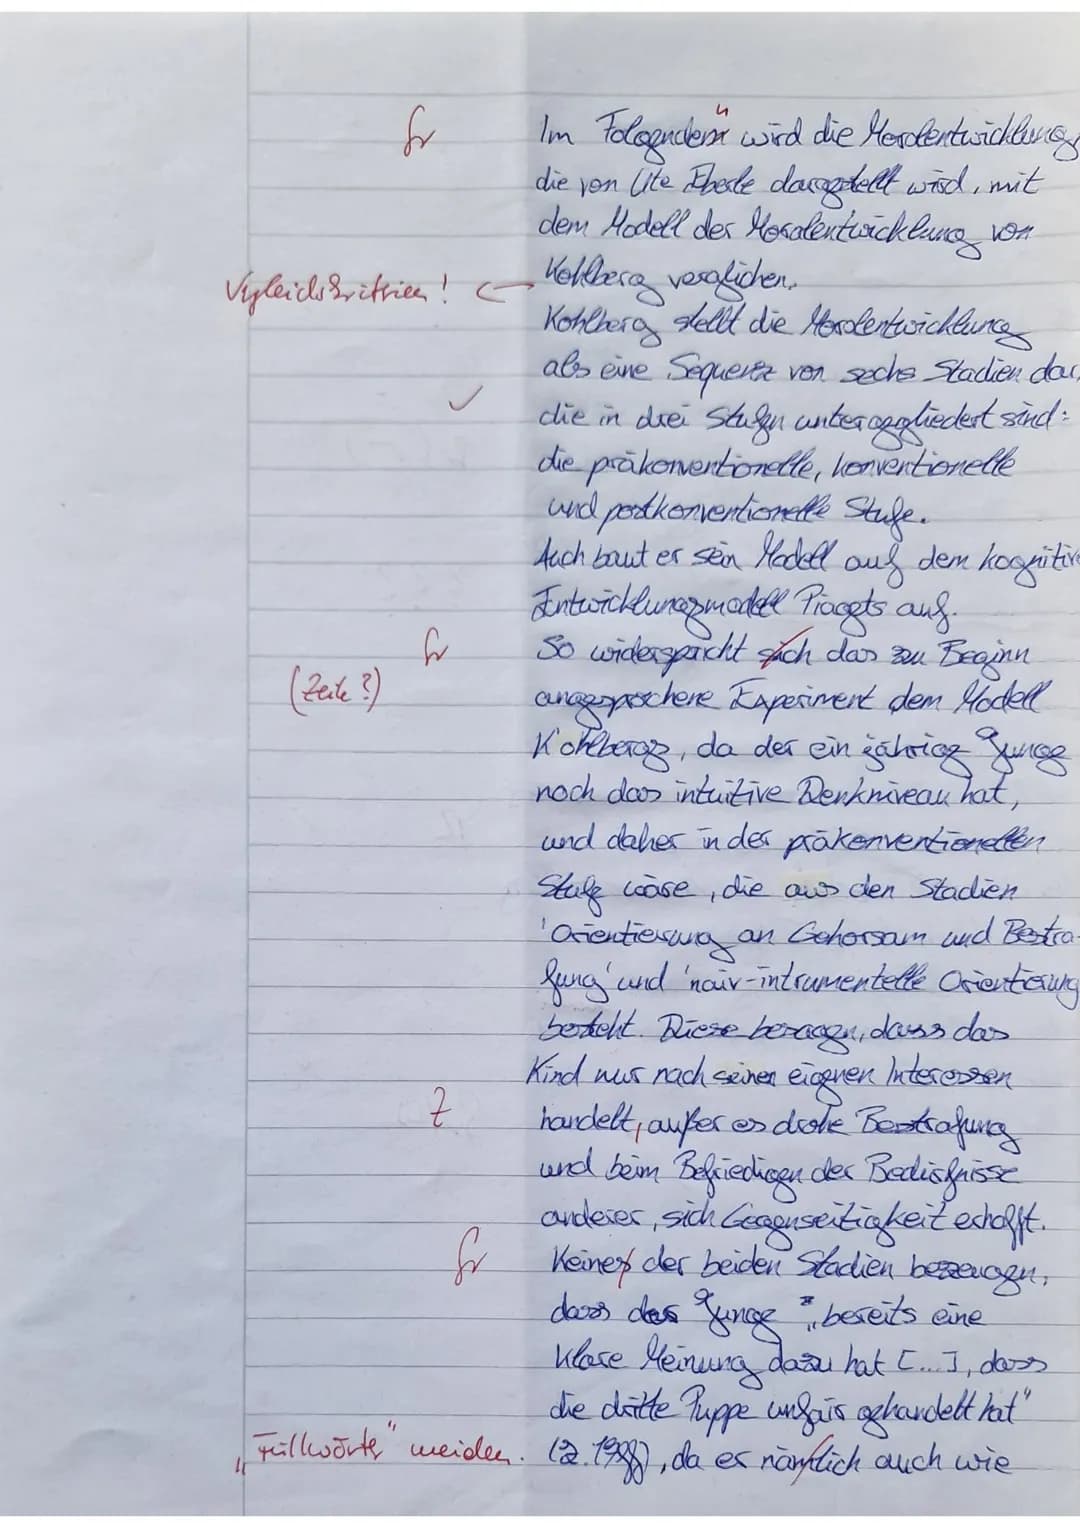 Gr Im Folgendem n wird die Moralentwicklung,
die von Ute Eberle dargstellt wird, mit
dem Modell der Moralentwicklung von
Vgleichskritrien! ← Kohlberg verglichen.
Kohlberg stellt die Moralentwicklung
als eine Sequenz von sechs Stadien dar,
✓ die in drei Stufen untergegliedert sind:
die präkonventionelle, konventionelle
und postkonventionelle Stufe.
Auch baut er sein Modell auf dem kognitive
Entwicklungsmodell Piagets auf.
Gr So widerspricht sich das zu Beginn
(Zeile?) angesprochene Experiment dem Modell
Kohlbergs, da der ein jährige Junge
noch das intuitive Denkniveau hat,
und daher in der präkonventionellen
Stufe wäre, die aus den Stadien
'Orientierung an Gehorsam und Bestra-
fung' und 'naiv-intrumentelle Orientierung
besteht. Diese besagen, dass das
Kind nur nach seinen eigenen Interessen
Z handelt, außer es drohe Bestrafung
und beim Befriedigen der Bedürfnisse
anderer, sich Gegenseitigkeit erhofft.
Gr Keiner der beiden Stadien bezeugen,
dass der Junge „bereits eine
klare Meinung dazu hat [...], dass
die dritte Puppe unfair gehandelt hat"
„Füllwörter" meiden. , da es nämlich auch wie